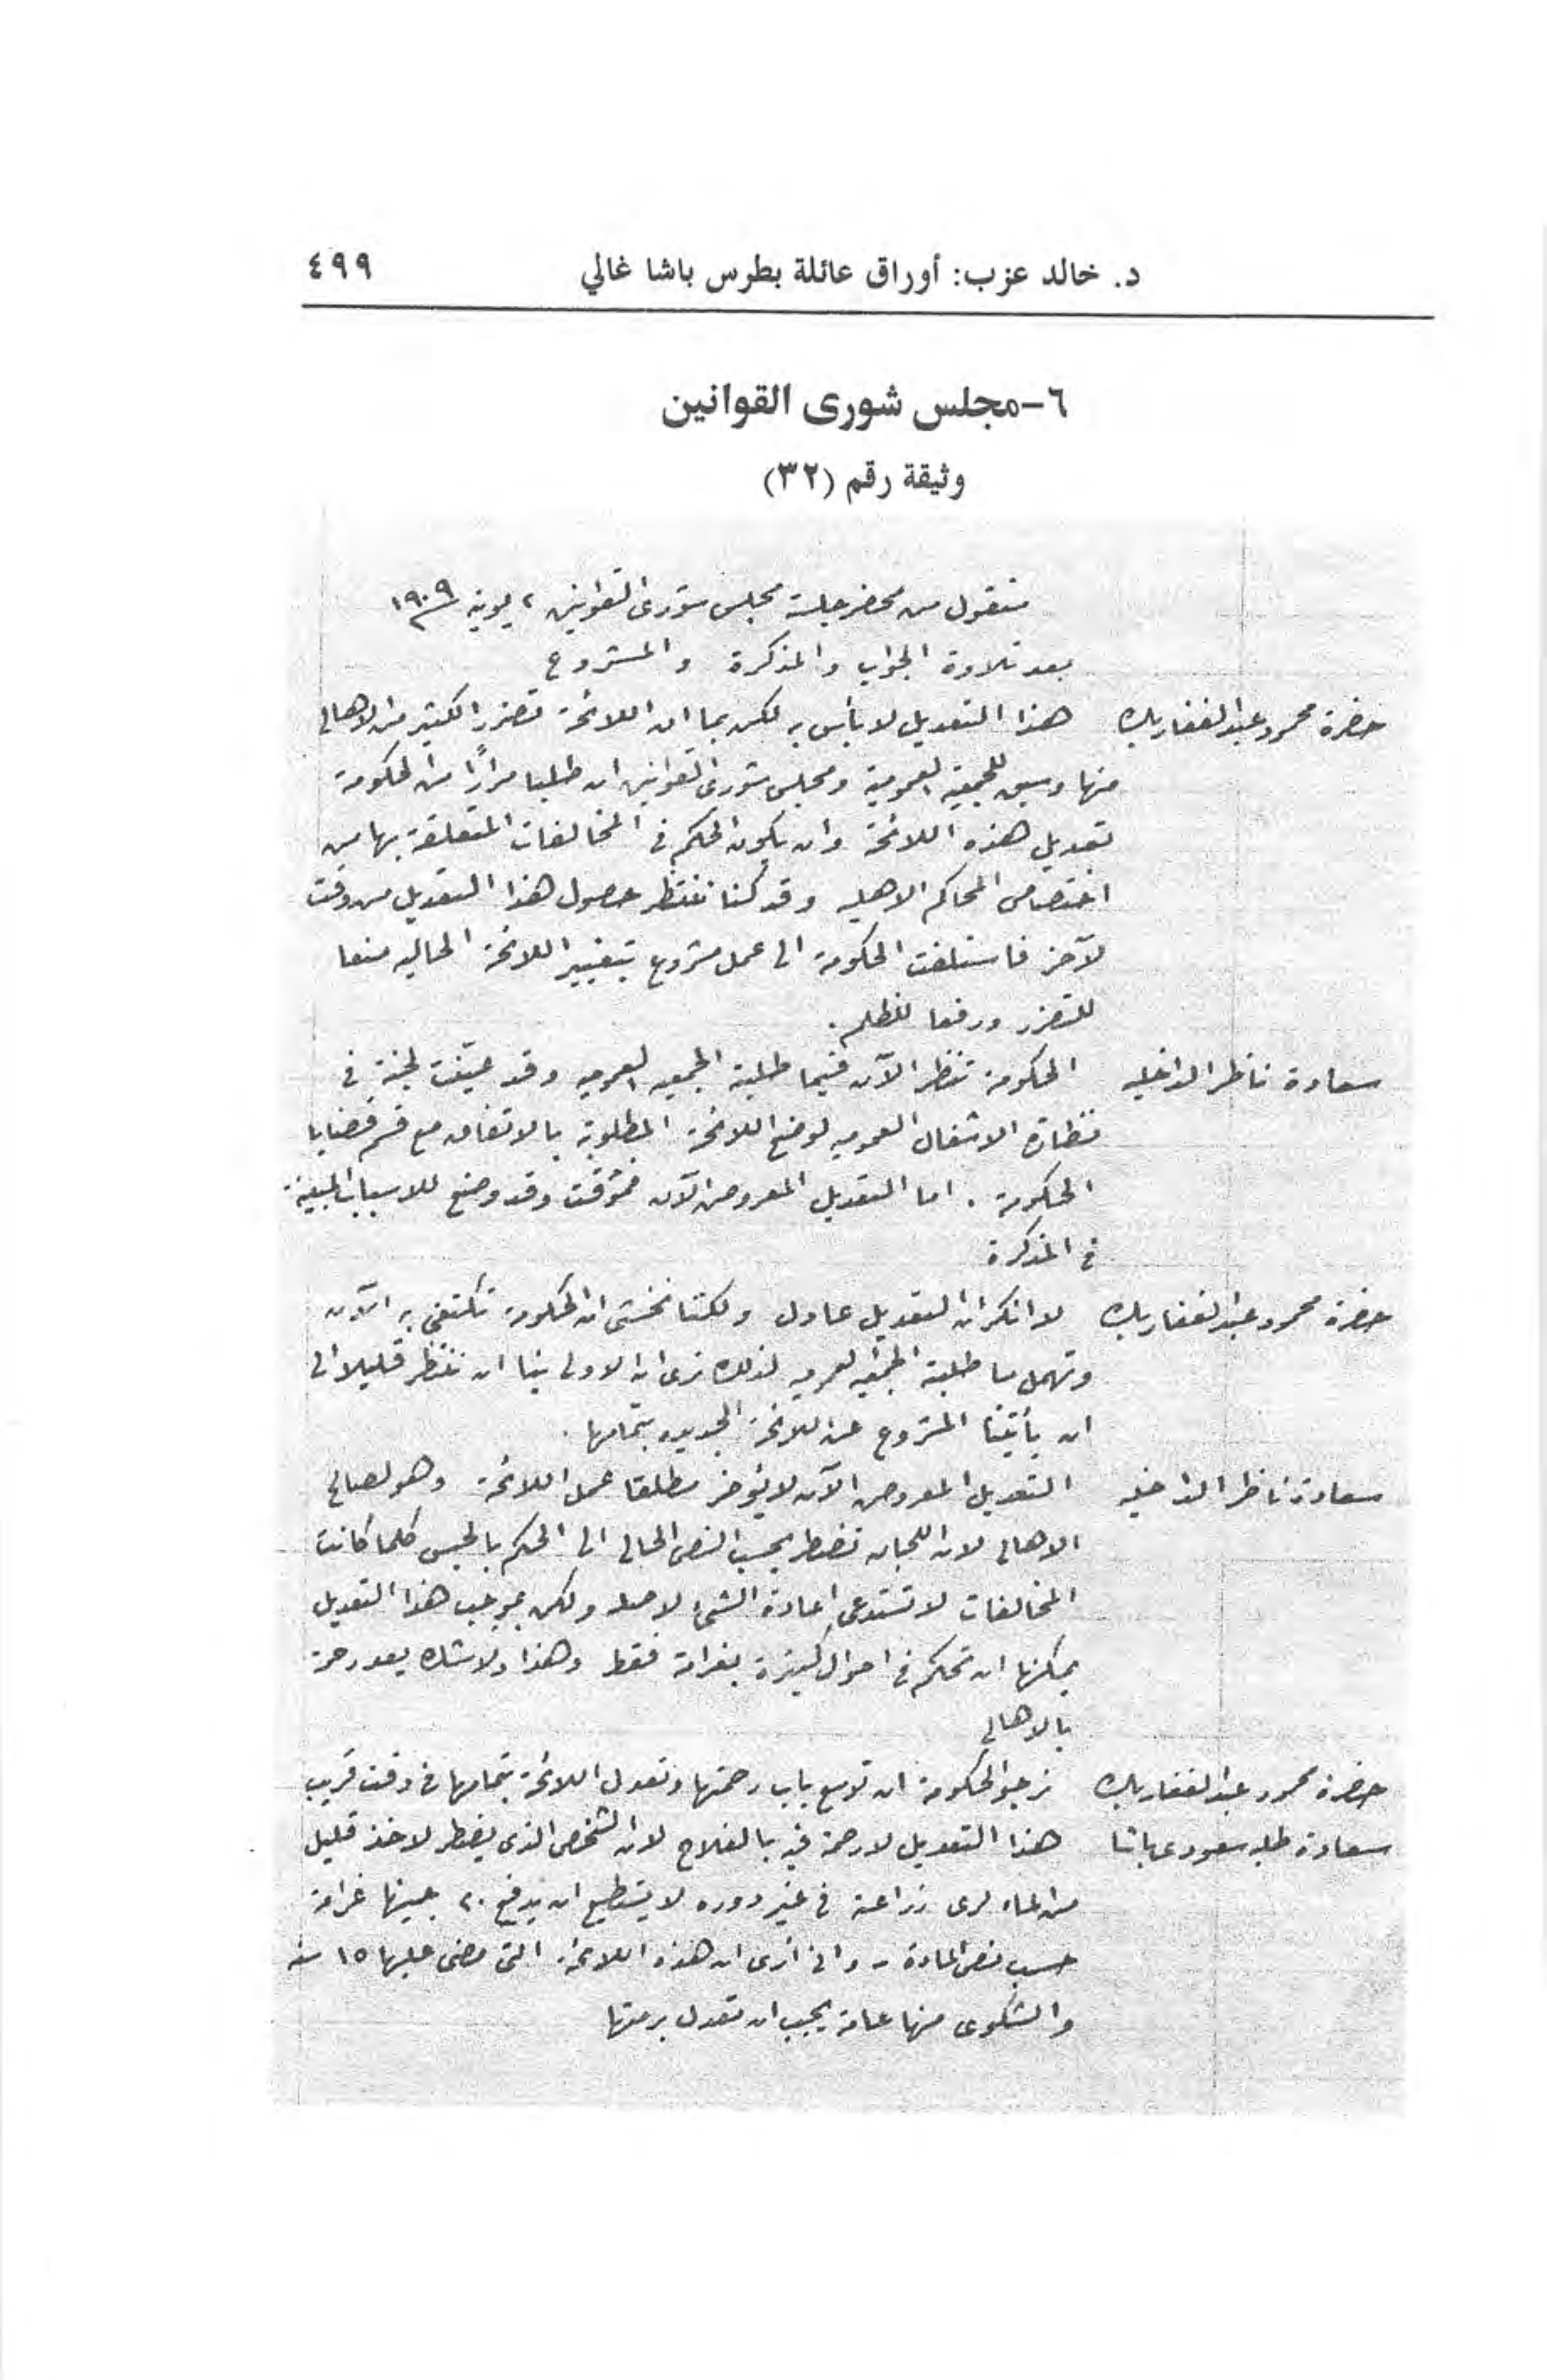 د. خالد عزب: أوراق عائلة بطرس باشا غالي ٤٩٩
٦-مجلس شورى القوانين
وثيقة رقم (٣٢)
منقول من محضر جلسة مجلس شورى القوانين ٢ يونيه ١٩٠٩
بعد تلاوة الجواب والمذكرة والمشروع
حضرة محمود عبد الغفار بك هذا التعديل لا بأس به لكن بما ان اللائحة تضرر الكثير من الاهالى
منها وسبق للجمعية العمومية ومجلس شورى القوانين ان طلبا مرارًا من الحكومة
تعديل هذه اللائحة وان يكون الحكم فى المخالفات المتعلقة بها من
اختصاص المحاكم الاهليه وقد كنا ننتظر حصول هذا التعديل من وقت
لآخر فاستلفت الحكومة الى عمل مشروع بتغيير اللائحة الحاليه منعا
للتضرر ورفعا للظلم.
سعادة ناظر الداخليه الحكومة تنظر الآن فيما طلبته الجمعيه العموميه وقد عيّنت لجنة فى
نظارة الاشغال العموميه لوضع اللائحة المطلوبة بالاتفاق مع قسم قضايا
الحكومة. اما التعديل المعروض الآن فمؤقت وقد وضع للاسباب المبينة
فى المذكرة
حضرة محمود عبد الغفار بك لا انكر ان التعديل عادل ولكننا نخشى ان الحكومة تكتفى به الآن
وتهمل ما طلبته الجمعيه العموميه لذلك نرى ان الاولى بنا ان ننتظر قليلا الى
ان يأتينا المشروع عن اللائحة الجديده بتمامها.
سعادة ناظر الداخليه التعديل المعروض الآن لا يؤخر مطلقا عمل اللائحة وهو لصالح
الاهالى لان اللجان تضطر بحسب النص الحالى الى الحكم بالحبس كلما كانت
المخالفات لا تستدعى إعادة الشئ لاصله ولكن بموجب هذا التعديل
يمكنها ان تحكم فى احوال كثيرة بغرامة فقط وهذا ولا شك يعد رحمة
بالاهالي
حضرة محمود عبد الغفار بك نرجو الحكومة ان توسع باب رحمتها وتعدل اللائحة بتمامها فى وقت قريب
سعادة طلبه سعودى باشا هذا التعديل لا رحمة فيه بالفلاح لان الشخص الذى يضطر لاخذ قليل
من الماء لرى زراعته فى غير دوره لا يستطيع ان يدفع ٢٠ جنيها غرامة
حسب نص المادة - وانى أرى ان هذه اللائحة التى مضى عليها ١٥ سنه
والشكوى منها عامة يجب ان تعدل برمتها